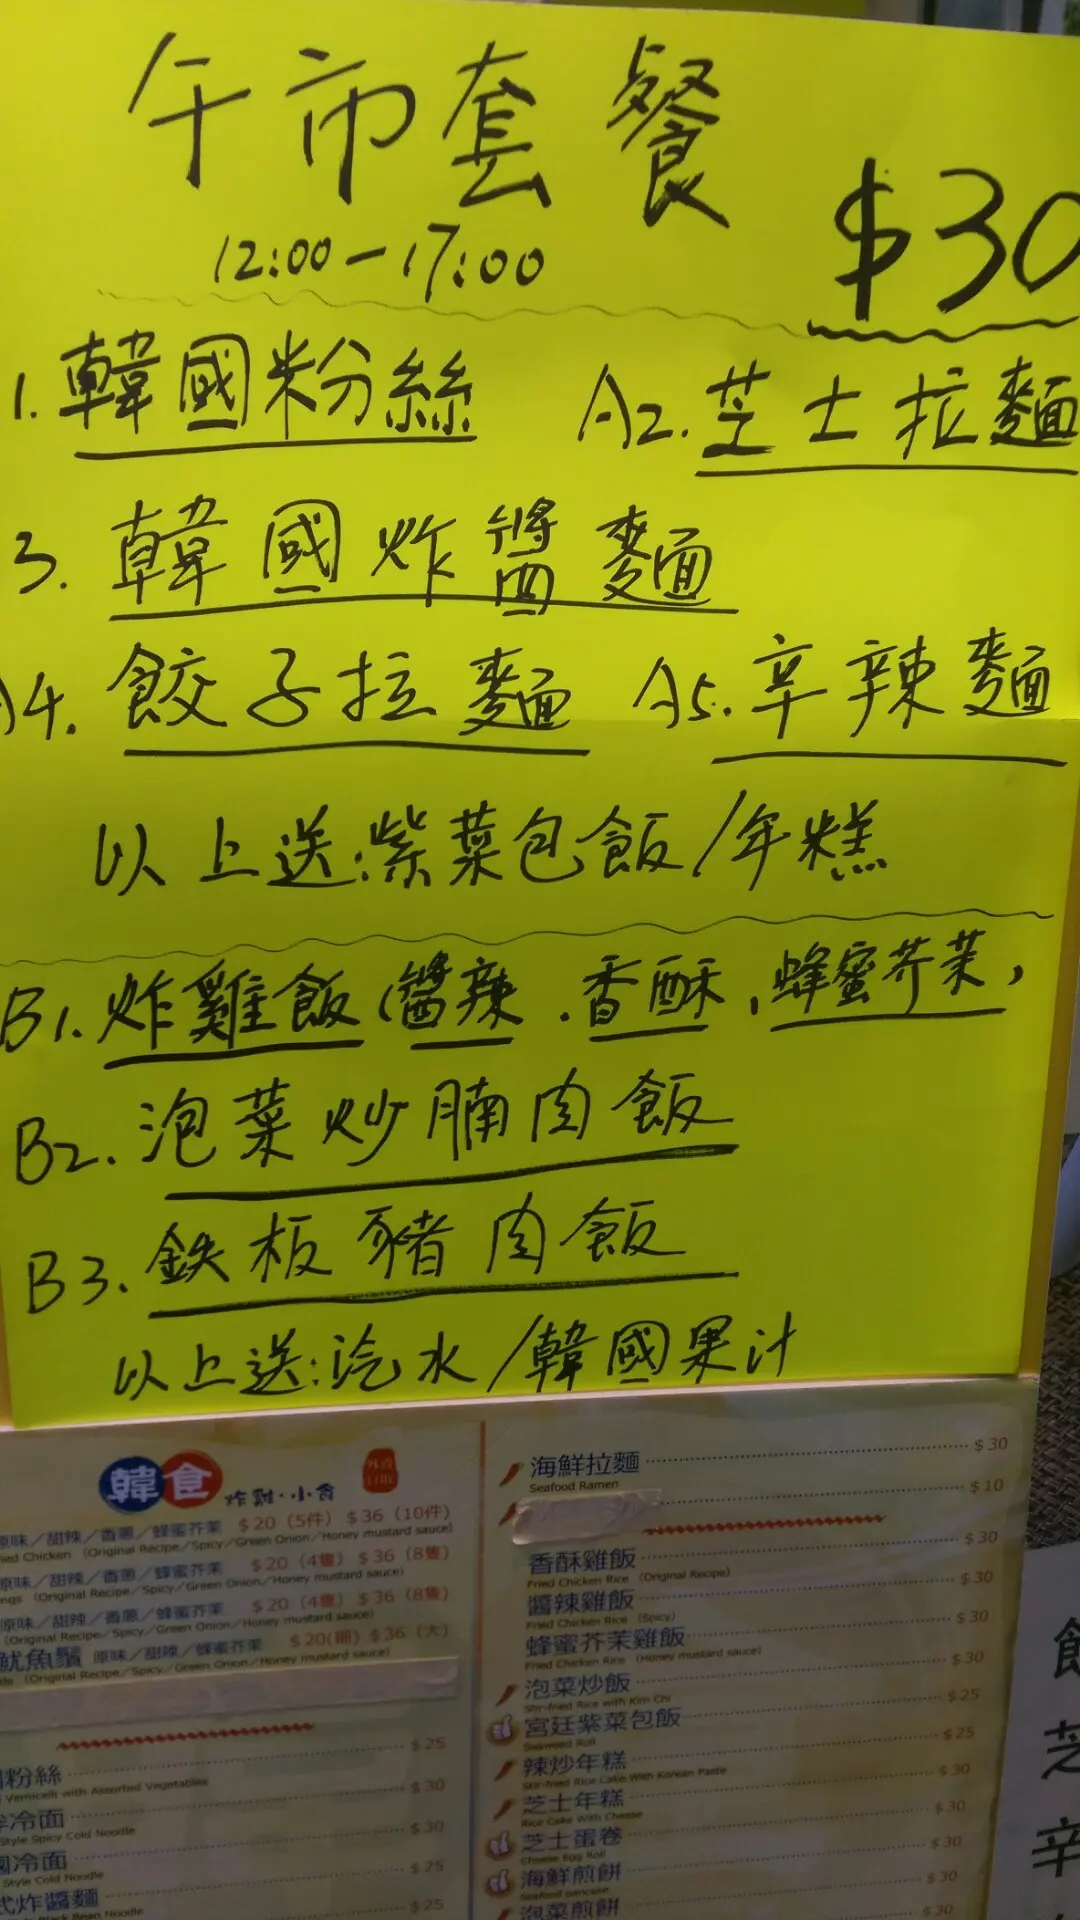 午市套餐
$30
12:00-17:00
1. 韓國粉絲 A2. 芝士拉麵
3. 韓國炸醬麵
A4. 餃子拉麵 A5. 辛辣麵
以上送:紫菜包飯/年糕
B1. 炸雞飯(醬辣.香酥,蜂蜜芥茉,
B2. 泡菜炒腩肉飯
B3. 鉄板豬肉飯
以上送:汽水/韓國果汁
韓食 炸雞·小食
外賣自取
原味/甜辣/香蔥/蜂蜜芥茉 $20(5件) $36(10件)
ried Chicken (Original Recipe/Spicy/Green Onion/Honey mustard sauce)
原味/甜辣/香蔥/蜂蜜芥茉 $20(4隻) $36(8隻)
ngs (Original Recipe/Spicy/Green Onion/Honey mustard sauce)
原味/甜辣/香蔥/蜂蜜芥茉 $20(4隻) $36(8隻)
(Original Recipe/Spicy/Green Onion/Honey mustard sauce)
魷魚鬚 原味/甜辣/蜂蜜芥茉 $20(細) $36(大)
(Original Recipe/Spicy/Green Onion/Honey mustard sauce)
$25
粉絲
Vermicelli with Assorted Vegetables
$30
冷面
Style Spicy Cold Noodle
$30
國冷面
Style Cold Noodle
$25
式炸醬麵
Black Bean Noodle
$25
海鮮拉麵 $30
Seafood Ramen
$10
香酥雞飯 $30
Fried Chicken Rice (Original Recipe)
醬辣雞飯 $30
Fried Chicken Rice (Spicy)
蜂蜜芥茉雞飯 $30
Fried Chicken Rice (Honey mustard sauce)
泡菜炒飯 $30
Stir-fried Rice with Kim Chi
宮廷紫菜包飯 $25
Seaweed Roll
辣炒年糕 $25
Stir-fried Rice Cake With Korean Paste
芝士年糕 $30
Rice Cake With Cheese
芝士蛋卷 $30
Cheese Egg Roll
海鮮煎餅 $30
Seafood pancake
泡菜煎餅 $30
芝
辛